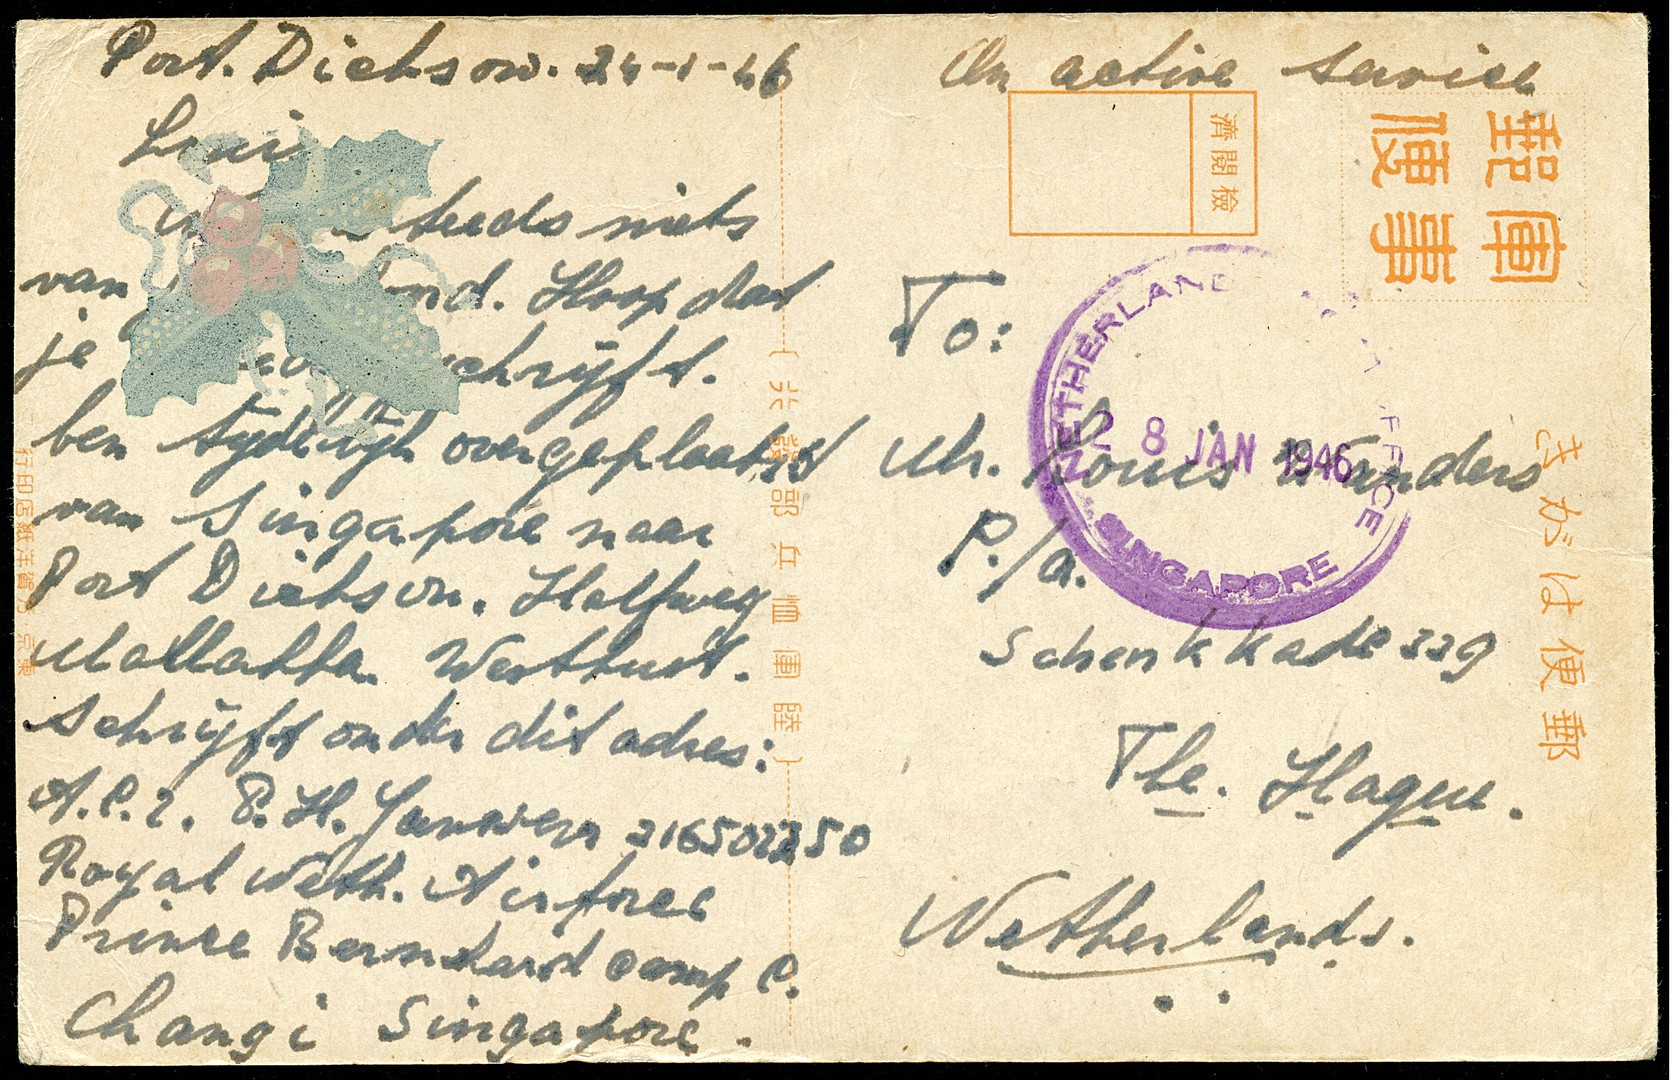 Port. Dickson. 24-1-46
Loui
steeds niets
van je nd. Hoop dat
je schrijft.
ben tijdelijk overgeplaatst
van Singapore naar
Port Dickson. Halfweg
Mallakka Westkust.
schrijft onder dit adres:
A.C.2. P.H. 216502250
Royal Neth. Airforce
Prince Bernhard camp C.
Changi Singapore.
On active service
軍事
郵便
檢閱濟
To:
Mr. Louis Wanders
P./a.
Schenkkade 339
The. Hague.
Netherlands.
NETHERLAND FFICE
SINGAPORE
28 JAN 1946
郵便はがき
(陸軍恤兵部發